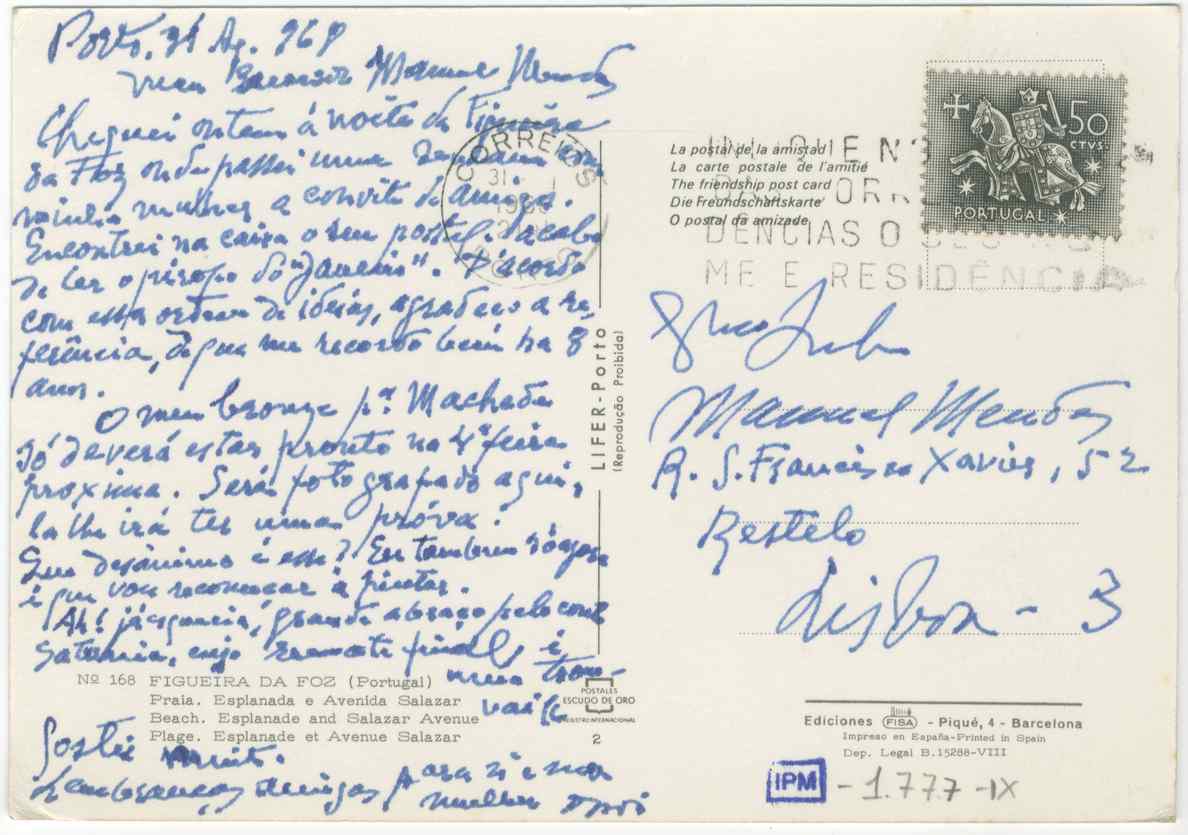 Porto, 31 Ag. 969
meu Manuel Mendes
Cheguei ontem á noite da Figueira
da Foz onde passei uma semana com
minha mulher a convite de amigos.
Encontrei na caixa o seu postal. Acabo
de ler o piropo do "Janeiro". D'acordo
com essa ordem de ideias, agradeço a re-
ferência, de que me recordo bem ha 8
anos.
O meu bronze pª Machado
Só deverá estar pronto na 4ª feira
próxima. Será fotografado aqui,
la lhe irá ter uma próva.
Seu desanimo é esse? Eu tambem só agora
é que vou recomeçar a pintar.
Ah! já esquecia, grande abraço pelo conto
cujo remate final é
Gostei muito.
Lembranças amigas para si e sua
mulher
CORREIOS
31
La postal de la amistad
La carte postale de l'amitié
The friendship post card
Die Freundschaftskarte
O postal da amizade
DÊNCIAS O
ME E RESIDÊNCIA
50
CTVS.
PORTUGAL
LIFER-Porto
(Reprodução Proibida)
Manuel Mendes
R. S. Francisco Xavier, 52
Restelo
Lisboa - 3
Nº 168 FIGUEIRA DA FOZ (Portugal)
Praia. Esplanada e Avenida Salazar
Beach. Esplanade and Salazar Avenue
Plage. Esplanade et Avenue Salazar
POSTALES
ESCUDO DE ORO
REGISTRO INTERNACIONAL
2
Ediciones FISA - Piqué, 4 - Barcelona
Impreso en España-Printed in Spain
Dep. Legal B.15288-VIII
IPM - 1.777-IX